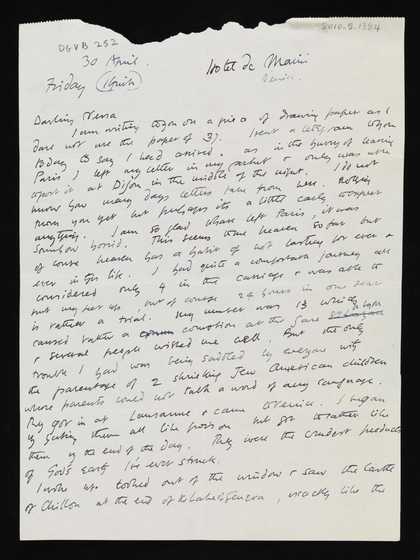 DGVB 252
2010.9.1394
30 April.
Hotel de Marini
Friday (think) Venice.
Darling Nessa
I am writing to you on a piece of drawing paper as I
dare not use the paper of 37. I sent a telegram to you
today to say I had arrived. as in the hurry of leaving
Paris I left my letter in my pocket & only was able
to post it at Dijon in the middle of the night. I do not
know how many days letters take from here. Nothing
from you yet but perhaps its a little early to expect
anything. I am so glad to have left Paris, it was
somehow horrid. This seems to me heaven so far but
of course heaven has a habit of not lasting for ever &
ever in this life. I had quite a comfortable journey all
considered only 4 in the carriage & was able to
put my feet up. Out of course 24 hours in one seat
is rather a trial. My number was 13 which
caused rather a commotion at the Gare de Lyon
& several people wished me well. But the only
trouble I had was being saddled by everyone with
the parentage of 2 shrieking Jew American children
whose parents could not talk a word of any language.
They got in at Lausanne & came to Venice. I began
by hating them all like poison but got to rather like
them by the end of the day. They were the crudest products
of God's earth I've ever struck.
I woke up looked out of the window & saw the Castle
of Chillon at the end of the Lake of Geneva, exactly like the